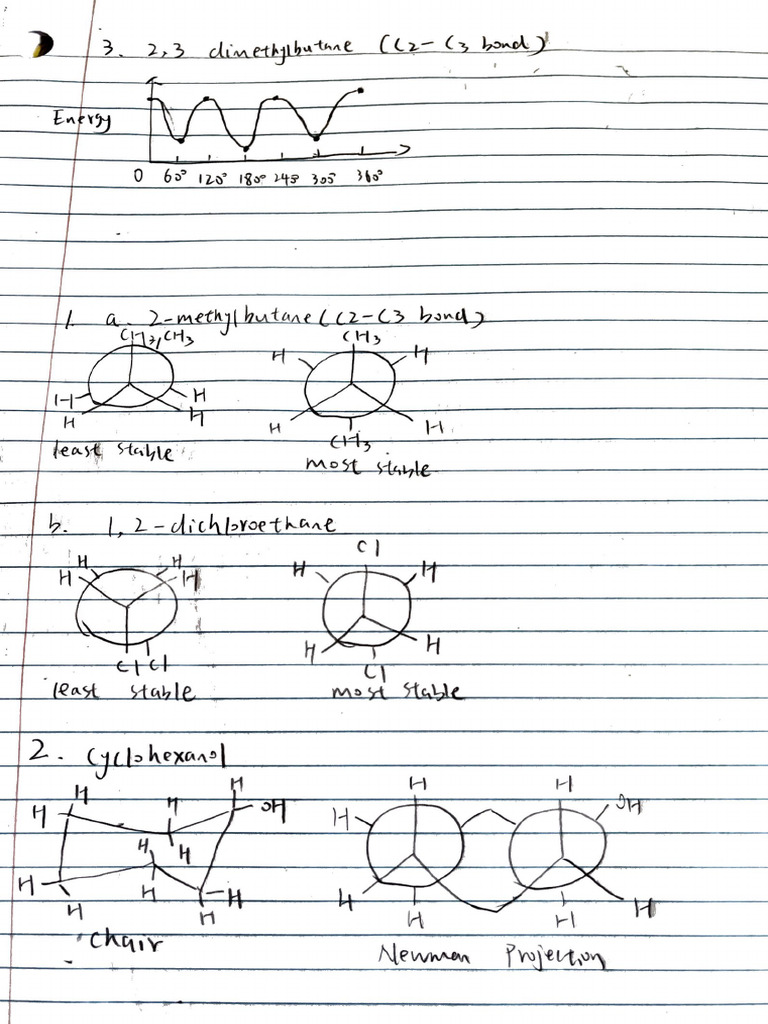 3. 2,3 dimethylbutane (C2-C3 bond)
Energy
0 60° 120° 180° 245° 305° 360°
1. a. 2-methylbutane (C2-C3 bond)
CH3,CH3 CH3
H H
H H
H H H H
CH3
least stable most stable
b. 1,2-dichloroethane
Cl
H H H H
H H
H H
Cl Cl Cl
least stable most stable
2. Cyclohexanol
H H H H
H H OH H OH
H H
H
H H H H H
H H H H H
chair Newman Projection